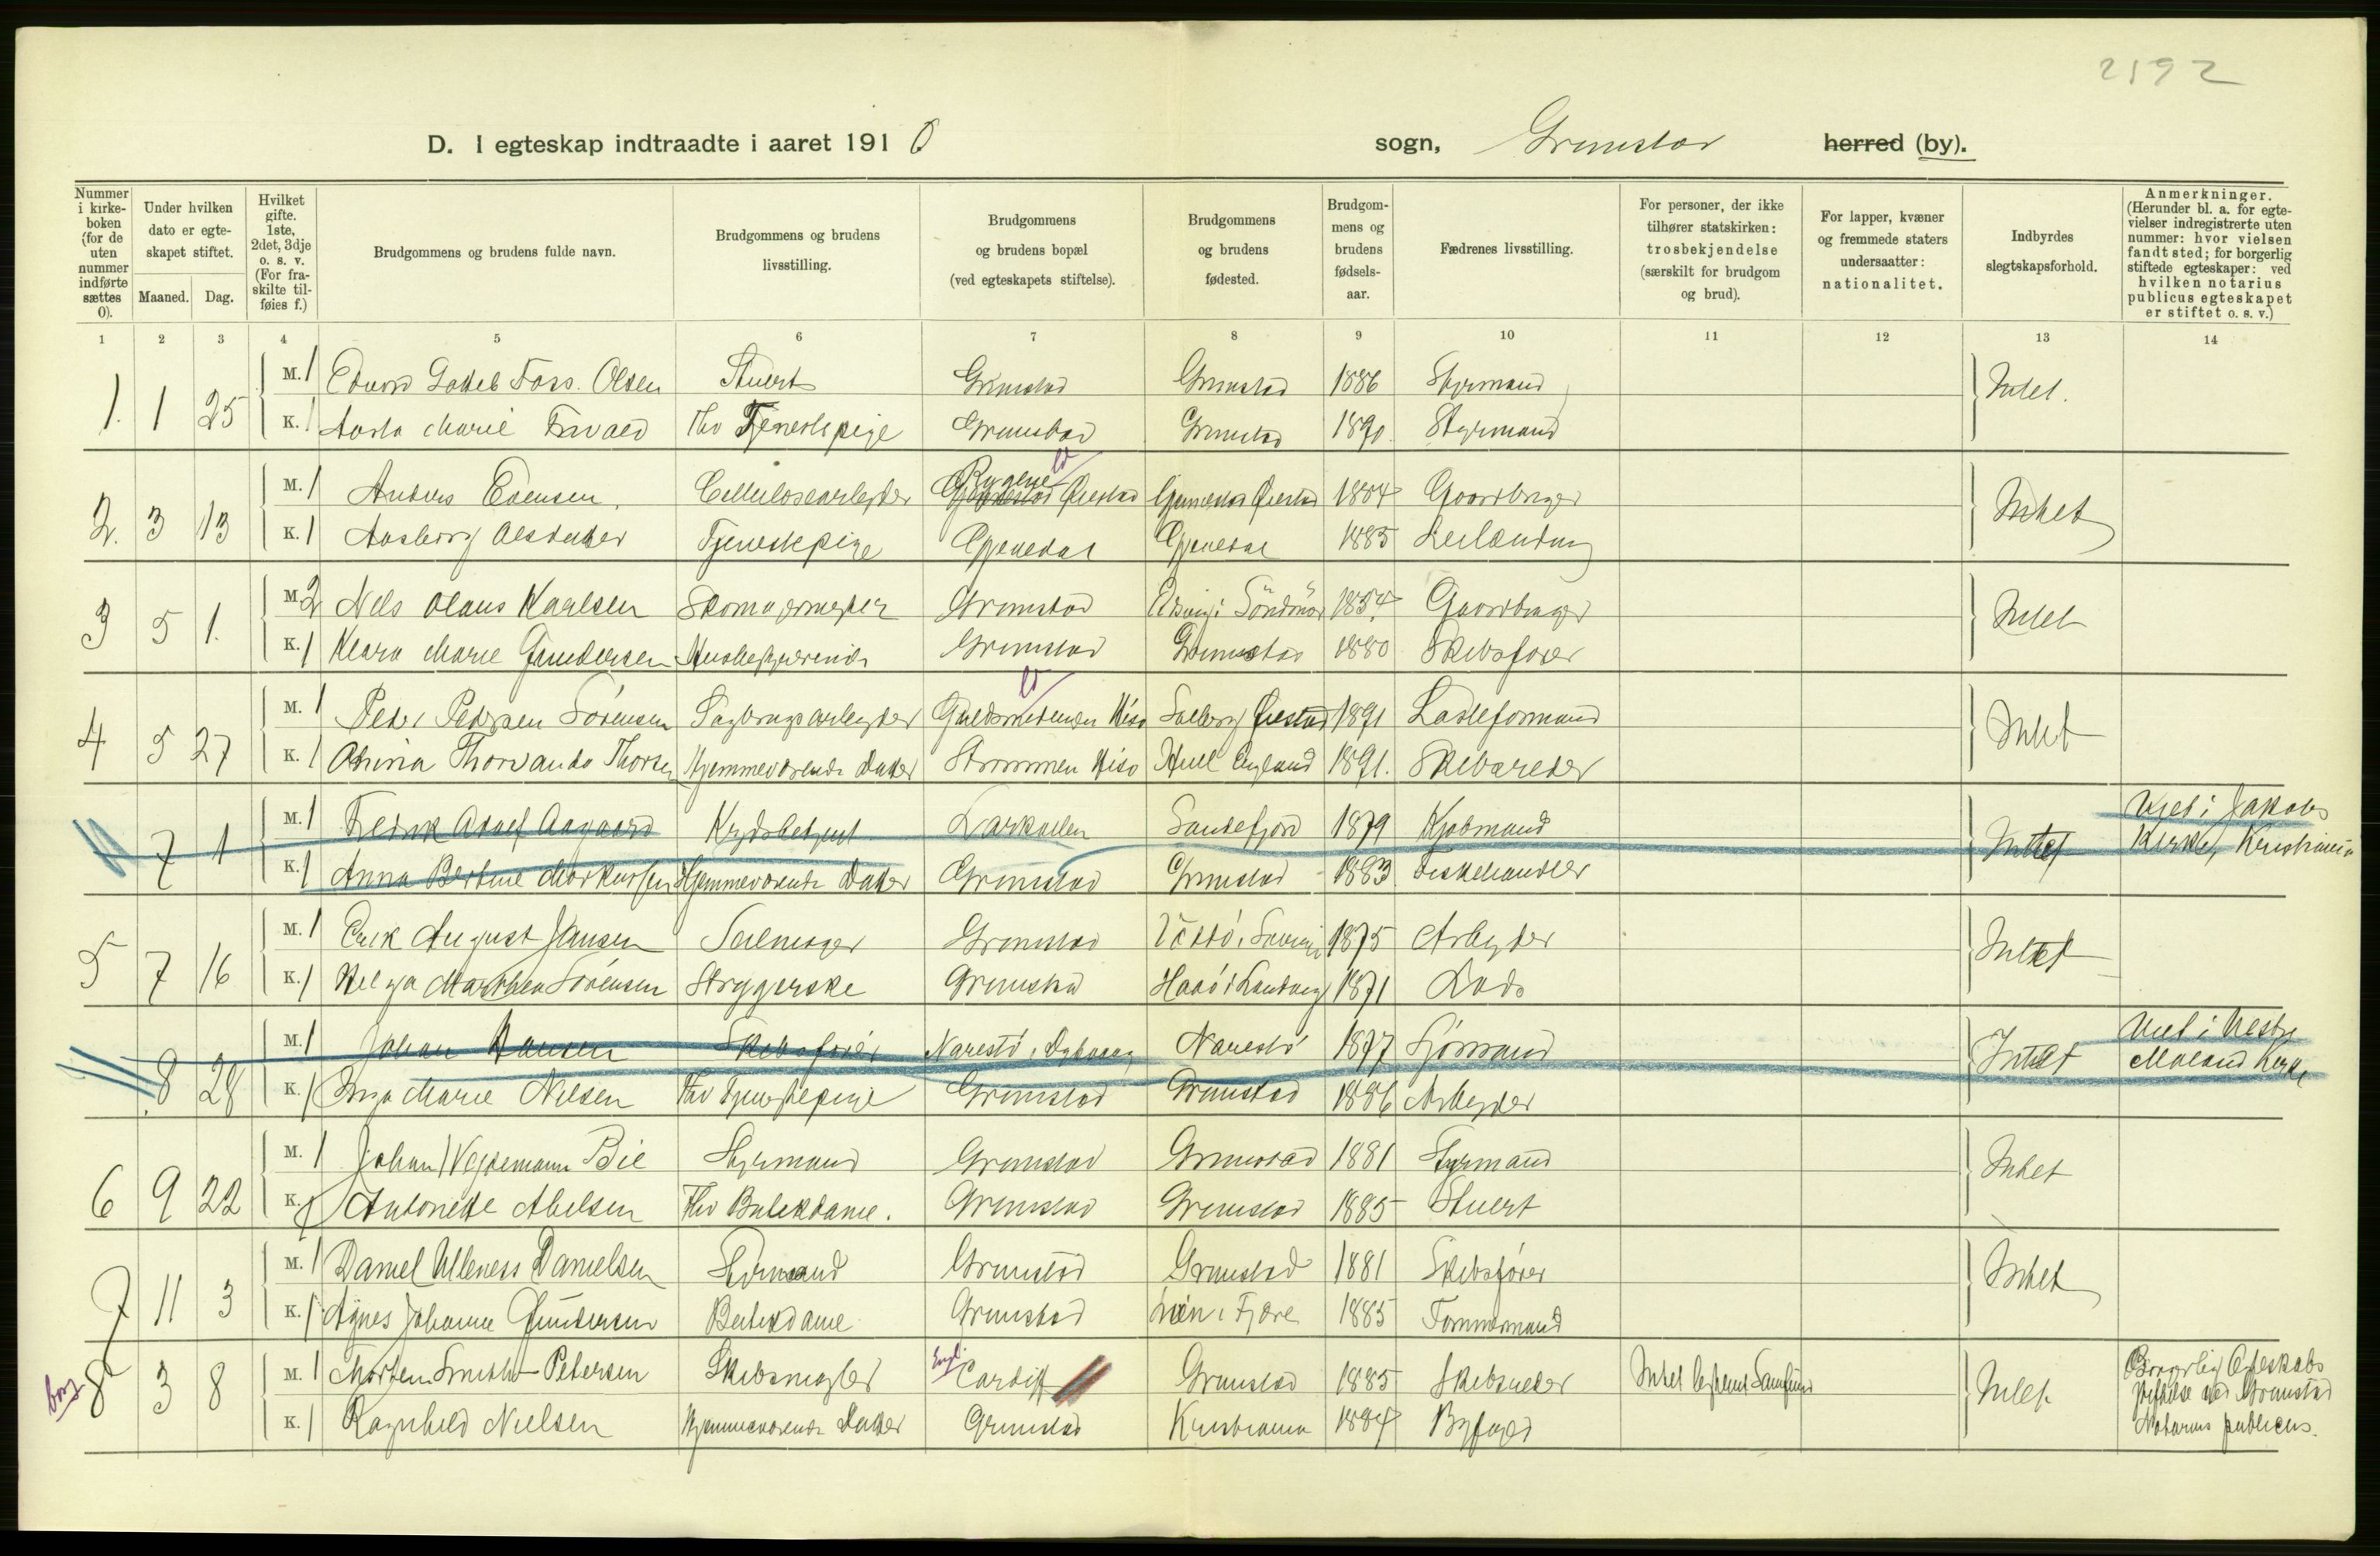 2192
D. I egteskap indtraadte i aaret 1910 sogn, Grimstad herred (by).
Nummer i kirke-boken (for de uten nummer indførte sættes 0).
Under hvilken dato er egte-skapet stiftet.
Maaned. Dag.
Hvilket gifte. 1ste, 2det, 3dje o. s. v. (For fra-skilte til-føies f.)
Brudgommens og brudens fulde navn.
Brudgommens og brudens livsstilling.
Brudgommens og brudens bopæl (ved egteskapets stiftelse).
Brudgommens og brudens fødested.
Brudgom-mens og brudens fødsels-aar.
Fædrenes livsstilling.
For personer, der ikke tilhører statskirken: trosbekjendelse (særskilt for brudgom og brud).
For lapper, kvæner og fremmede staters undersaatter: nationalitet.
Indbyrdes slegtskapsforhold.
Anmerkninger. (Herunder bl. a. for egte-vielser indregistrerte uten nummer: hvor vielsen fandt sted; for borgerlig stiftede egteskaper: ved hvilken notarius publicus egteskapet er stiftet o. s. v.)
1 2 3 4 5 6 7 8 9 10 11 12 13 14
1. 1 25 M. 1 Foss. Olsen Stuert Grimstad Grimstad 1886 Styrmand Intet.
K. 1 Marie Tjenestepige Grimstad Grimstad 1890. Styrmand
2. 3 13 M. 1 Anders Evensen, Cellulosearbeyder Rygene Øiestad Øiestad 1884 Gaardbruger Intet
K. 1 Aasborg Olsdatter Tjenestepige Gjevedal Gjevedal 1885 Leilænding
3 5 1. M. 2 Nils Olaus Karlsen Skomagermester Grimstad Söndmör 1854 Gaardbruger Intet
K. 1 Klara Marie Gundersen Husbestyrerinde Grimstad Grimstad 1880 Skibsfører
4 5 27 M. 1 Peder Pedersen Sørensen Sagbrugsarbeyder Hisø Solberg Øiestad 1891 Ladeformand Intet
K. 1 Thorvanda Hjemmeværende Datter Strømmen Hisø Hull England 1891. Skibsreder
7 1 M. 1 Fredrik Adolf Aagaard Krydsbetjent Larkollen Sandefjord 1879 Kjøbmand Intet Viet i Jakobs
K. 1 Anna Bertine Markussen Hjemmeværende Datter Grimstad Grimstad 1883 Fiskehandler Kirke, Kristiania
5 7 16 M. 1 Erik August Jansen Seilmager Grimstad 1875 Arbeyder Intet
K. 1 Helga Marthea Sørensen Strygerske Grimstad Haaö i Landvig 1871 Lods
8 28 M. 1 Johan Hansen Skibsfører Narestö i Dybvaag Narestö 1877 Sjømand Intet Viet i Østre
K. 1 Inga Marie Nilsen Fhv Tjenestepige Grimstad Grimstad 1886 Arbeyder Moland Kirke
6 9 22 M. 1 Johan Bie Styrmand Grimstad Grimstad 1881 Styrmand Intet
K. 1 Antonette Abelsen Fhv Butikdame. Grimstad Grimstad 1885 Stuert
7 11 3 M. 1 Daniel Ulleness Danielsen Styrmand Grimstad Grimstad 1881 Skibsfører Intet
K. 1 Agnes Johanne Gundersen Butikdame Grimstad Vien i Fjære 1885 Tømmermand
borg 8 3 8 M. 1 Morten Smith Petersen Skibsmægler Engl. Cardiff Grimstad 1885 Skibsreder Intet bestemt Samfund Intet Borgerlig Egteskabs
K. 1 Ragnhild Nielsen Hjemmeværende Datter Grimstad Kristiania 1884 Byfoged stiftelse ved Grimstad
Notarius publicus.